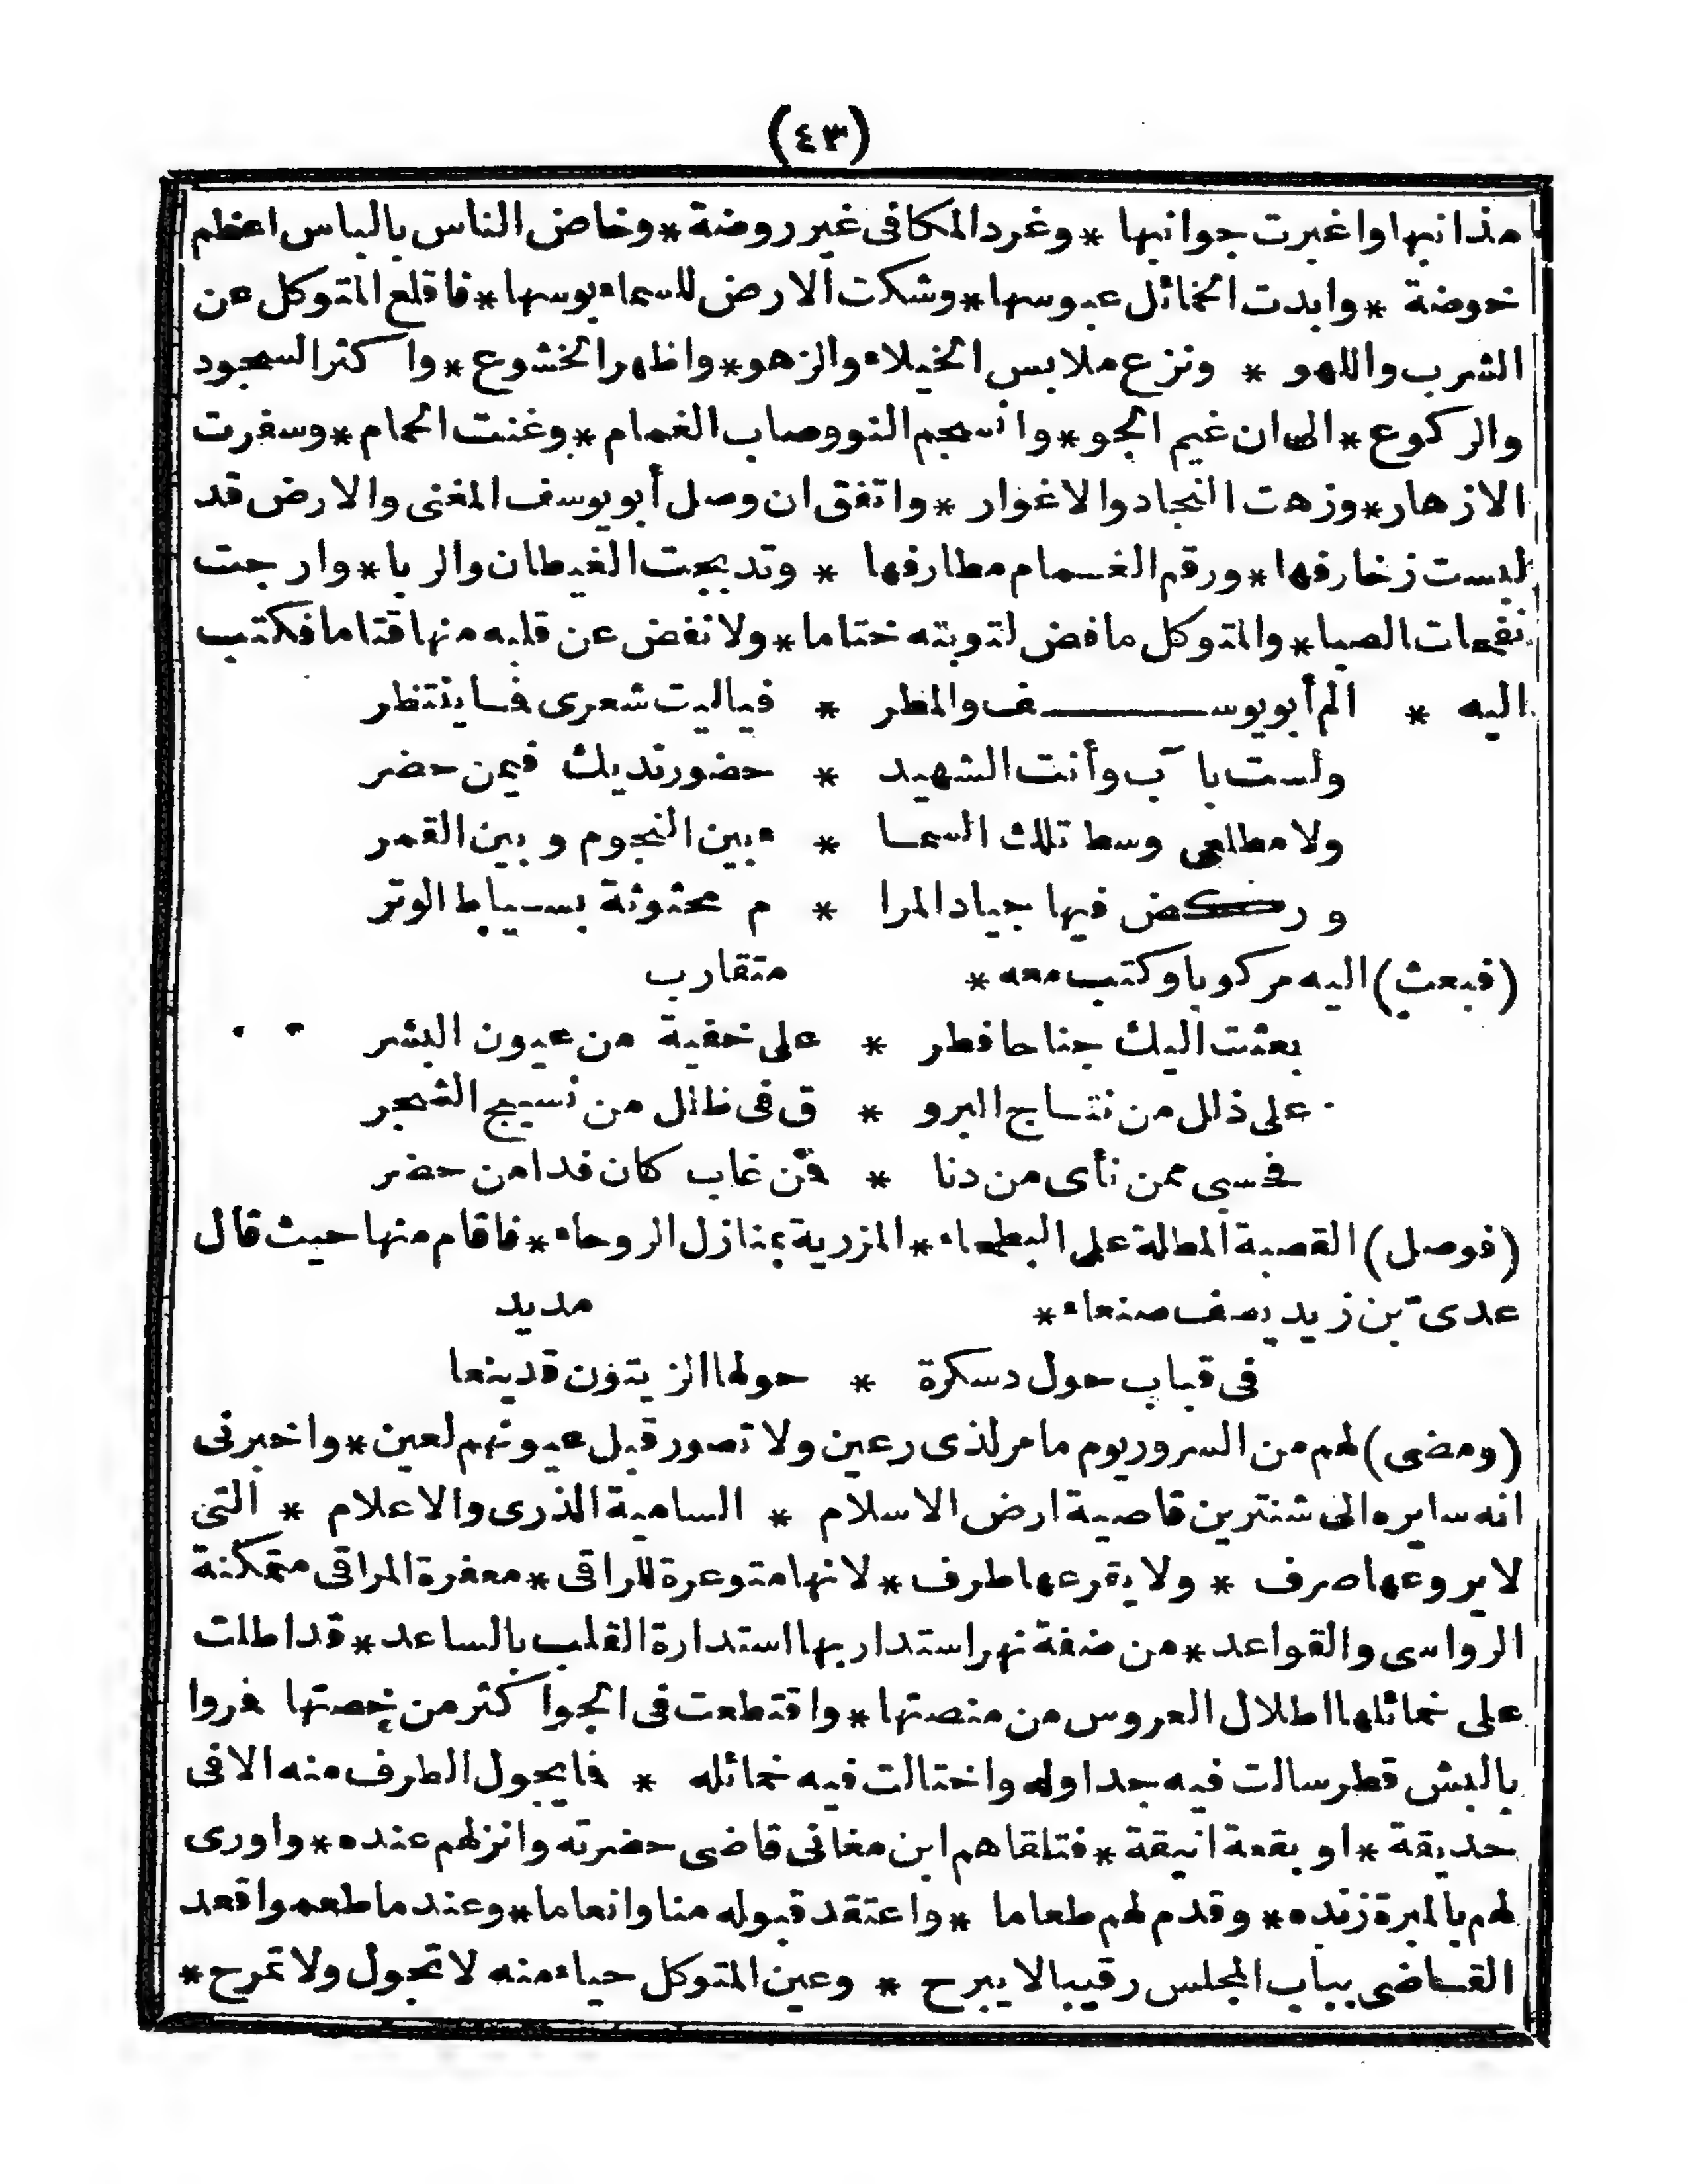 (٤٣)
مذانبها واغبرت جوانبها * وغرد المكا فى غير روضة * وخاض الناس بالباس اعظم
خوضة * وابدت الخمائل عبوسها * وشكت الارض للسماء بوسها * فاقلع المتوكل عن
الشرب واللهو * ونزع ملابس الخيلاء والزهو * واظهر الخشوع * واكثر السجود
والركوع * الى ان غيم الجو * وانسجم النو وصاب الغمام * وغنت الحمام * وسفرت
الازهار * وزهت النجاد والاغوار * واتفق ان وصل أبو يوسف المغنى والارض قد
لبست زخارفها * ورقم الغمام مطارفها * وتدبجت الغيطان والربا * وارجت
نفحات الصبا * والمتوكل ما فض لتوبته ختاما * ولا نفض عن قلبه منها قتاما فكتب
اليه * الم أبو يوسف والمطر * فياليت شعرى فما ينتظر
ولست بآب وأنت الشهيد * حضور نديك فيمن حضر
ولا مطلعى وسط تلك السما * ء بين النجوم وبين القمر
وركض فيها جياد المرا * م محثوثة بسياط الوتر
(فبعث) اليه مركوبا وكتب معه * متقارب
بعثت اليك جناحا فطر * على خفية من عيون البشر
على ذلل من نتاج البرو * ق فى ظلل من نسيج الشجر
فحسبى ممن نأى من دنا * فمن غاب كان فدا من حضر
(فوصل) القصبة المطلة على البطحاء * المزرية بمنازل الروحاء * فاقام منها حيث قال
عدىّ بن زيد يصف صنعاء * مديد
فى قباب حول دسكرة * حولها الزيتون قد ينعا
(ومضى) لهم من السرور يوم ما مر لذى رعين ولا تصور قبل عيونهم لعين * واخبرنى
انه سايره الى شنترين قاصية ارض الاسلام * السامية الذرى والاعلام * التى
لا يروعها صرف * ولا يقرعها طرف * لانها متوعرة المراقى * معفرة المراقى متمكنة
الرواسى والقواعد * من ضفة نهر استدار بها استدارة القلب بالساعد * قد اطلت
على خمائلها اطلال العروس من منصتها * واقتطعت فى الجو اكثر من حصتها فمروا
بالبش قطر سالت فيه جداوله واختالت فيه خمائله * فما يجول الطرف منه الا فى
حديقة * او بقعة انيقة * فتلقاهم ابن مغانى قاضى حضرته وانزلهم عنده * واورى
لهم بالمبرة زنده * وقدم لهم طعاما * واعتقد قبوله منا وانعاما * وعند ما طعموا قعد
القاضى بباب المجلس رقيبا لا يبرح * وعين المتوكل حياء منه لا تجول ولا تمرح *